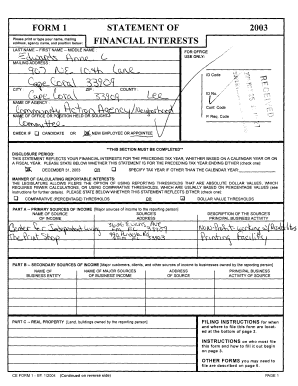 FORM 1
STATEMENT OF
FINANCIAL INTERESTS
2003
Please print or type your name, mailing
address, agency name, and position below:
LAST NAME -- FIRST NAME -- MIDDLE NAME
FOR OFFICE
USE ONLY:
Edwards Anne C
MAILING ADDRESS
907 NE 10th Lane
Cape Coral 33909
ID Code
CITY ZIP COUNTY
Cape Coral 33909 Lee
ID No.
NAME OF AGENCY
Community Action Agency/Neighborhood
Conf. Code
NAME OF OFFICE OR POSITION HELD OR SOUGHT
Committee
P. Req. Code
CHECK IF CANDIDATE OR NEW EMPLOYEE OR APPOINTEE
**THIS SECTION MUST BE COMPLETED**
DISCLOSURE PERIOD:
THIS STATEMENT REFLECTS YOUR FINANCIAL INTERESTS FOR THE PRECEDING TAX YEAR, WHETHER BASED ON A CALENDAR YEAR OR ON
A FISCAL YEAR. PLEASE STATE BELOW WHETHER THIS STATEMENT IS FOR THE PRECEDING TAX YEAR ENDING EITHER (check one)
DECEMBER 31, 2003 OR SPECIFY TAX YEAR IF OTHER THAN THE CALENDAR YEAR:
MANNER OF CALCULATING REPORTABLE INTERESTS:
THE LEGISLATURE ALLOWS FILERS THE OPTION OF USING REPORTING THRESHOLDS THAT ARE ABSOLUTE DOLLAR VALUES, WHICH
REQUIRES FEWER CALCULATIONS, OR USING COMPARATIVE THRESHOLDS, WHICH ARE USUALLY BASED ON PERCENTAGE VALUES (see
instructions for further details). PLEASE STATE BELOW WHETHER THIS STATEMENT REFLECTS EITHER (check one)
COMPARATIVE (PERCENTAGE) THRESHOLDS OR DOLLAR VALUE THRESHOLDS
PART A -- PRIMARY SOURCES OF INCOME [Major sources of income to the reporting person]
NAME OF SOURCE
OF INCOME
SOURCE'S
ADDRESS
DESCRIPTION OF THE SOURCE'S
PRINCIPAL BUSINESS ACTIVITY
Center for Independent Living
The Print Shop
Printing facility
PART B -- SECONDARY SOURCES OF INCOME [Major customers, clients, and other sources of income to businesses owned by the reporting person]
NAME OF
BUSINESS ENTITY
NAME OF MAJOR SOURCES
OF BUSINESS' INCOME
ADDRESS
OF SOURCE
PRINCIPAL BUSINESS
ACTIVITY OF SOURCE
PART C -- REAL PROPERTY [Land, buildings owned by the reporting person]
FILING INSTRUCTIONS for when
and where to file this form are locat-
ed at the bottom of page 2.
INSTRUCTIONS on who must file
this form and how to fill it out begin
on page 3.
OTHER FORMS you may need to
file are described on page 6.
CE FORM 1 - Eff. 1/2004 (Continued on reverse side) PAGE 1